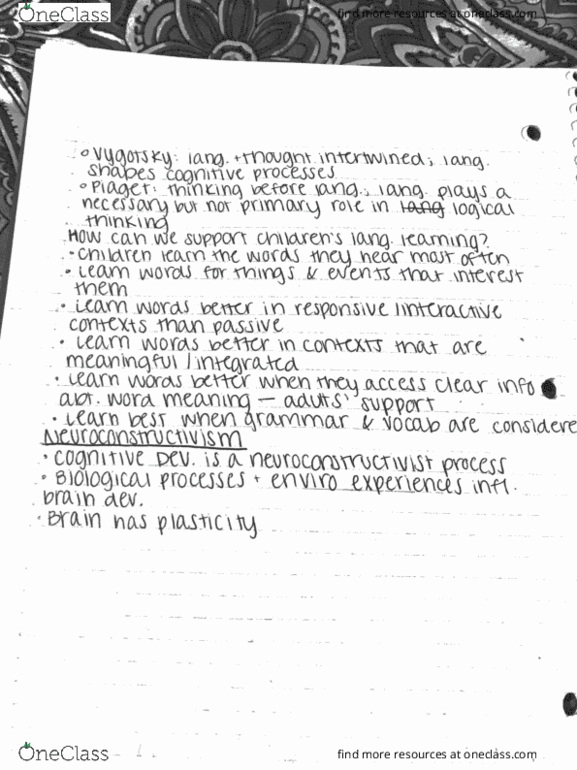 OneClass
find more resources at oneclass.com
° Vygotsky: lang. + thought intertwined; lang.
shapes cognitive processes
° Piaget: thinking before lang.; lang. plays a
necessary but not primary role in lang logical
thinking
How can we support children's lang. learning?
• Children learn the words they hear most often
• Learn words for things & events that interest
them
• Learn words better in responsive / interactive
contexts than passive
• Learn words better in contexts that are
meaningful / integrated
• Learn words better when they access clear info
abt. word meaning — adults' support
• Learn best when grammar & vocab are considere
Neuroconstructivism
• Cognitive Dev. is a neuroconstructivist process
• Biological processes + enviro experiences infl.
brain dev.
• Brain has plasticity
OneClass
find more resources at oneclass.com